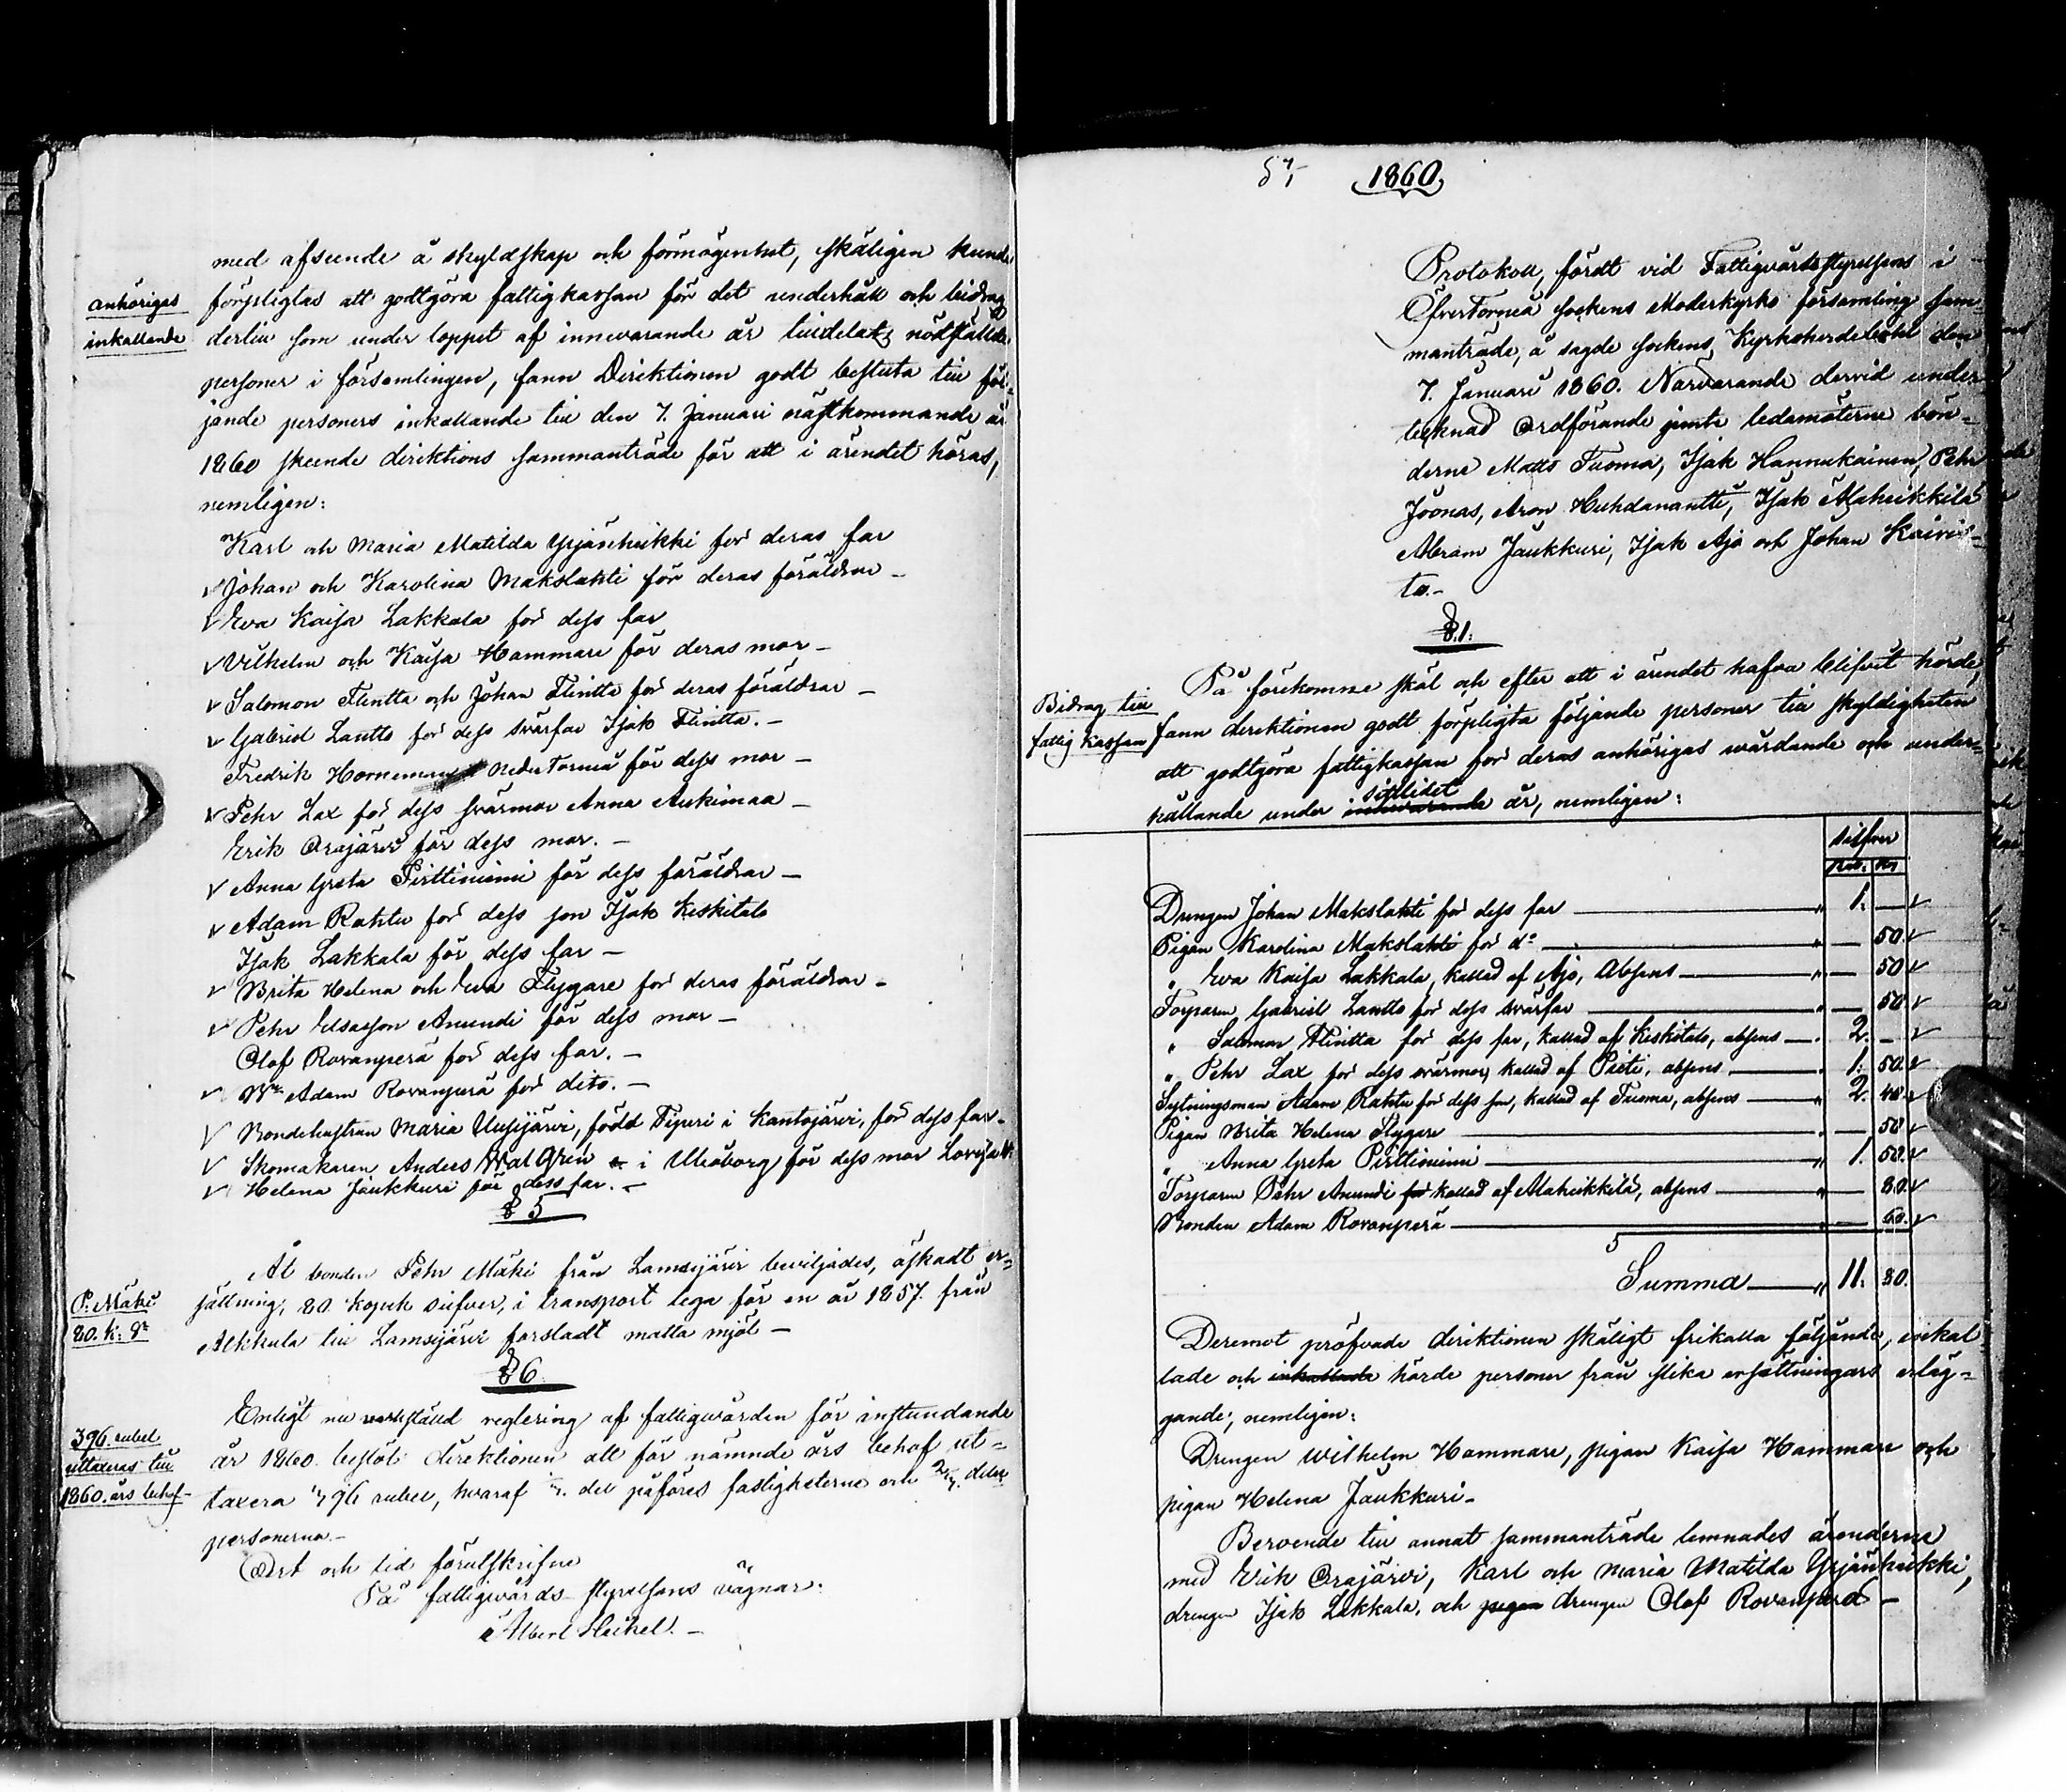 med afseende å skyldskap och förmögenhet, skäligen kunde
anhörigas
inkallande
förpligtas att godtgöra fattigkassan för det underhåll och bidrag
dertill som under loppet af innevarande år tilldelats nödstälde
personer i församlingen, fann Direktionen godt besluta till föl-
jande personers inkallande till den 7. Januari nästkommande år
1860 skeende direktions sammanträde för att i ärendet höras,
nemligen:
Karl och Maria Matilda Yrjänheikki för deras far
√ Johan och Karolina Makslahti för deras föräldrar –
√ Eva Kaisa Lakkala för dess far
√ Vilhelm och Kaisa Hammare för deras mor –
√ Salomon Flintta och Johan Flintta för deras föräldrar –
√ Gabriel Lantto för dess svärfar Isak Flintta. –
Fredrik Horneman NederTorneå för dess mor –
√ Pehr Lax för dess svärmor Anna Aukimaa –
Erik Orajärvi för dess mor. –
√ Anna Greta Pirttiniemi för dess föräldrar –
√ Adam Rahtu för dess son Isak Keskitalo
Isak Lakkala för dess far –
√ Brita Helena och Eva Flygare för deras föräldrar –
√ Pehr Elsasson Anundi för dess mor –
Olof Rovanperä för dess far. –
√ Adam Rovanperä för dito. –
√ Bondehustrun Maria Uusijärvi, född Fijuri i Kantojärvi, för dess far –
√ Skomakaren Anders Walgrén i Uleåborg för dess mor Lovisa
√ Helena Jaukkuri för dess far. –
§ 5
P. Mäki
80. k: Sr
Åt bonden Pehr Mäki från Lamsijärvi beviljades, äskadt er-
sättning, 80. kopek silfver, i transport lega för en år 1857. från
Alkkula till Lamsijärvi forsladt matta mjöl –
§ 6
396. rubel
uttaxeras till
1860. års behof –
Enligt nu verkställd reglering af fattigvården för instundande
år 1860. beslöt direktionen att för nämnde års behof ut-
taxera 396 rubel, hvaraf del påföres fastigheterne och delar
personerna –
Ort och tid förutskrifne
På fattigvårds styrelsens vägnar:
Albert Heikel. –
1860.
Protokoll, fördt vid Fattigvårdsstyrelsens i
ÖfverTorneå sockens Moderkyrko församling sam-
manträde, å sagde sockens Kyrkoherdeboställ den
7. Januari 1860. Närvarande dervid under-
tecknad Ordförande jemte ledamöterne bön-
derne Matts Tuoma, Isak Hannukainen, Pehr
Joonas, Aron Huhdanantti, Isak Alaheikkilä
Abram Jaukkuri, Isak Ajo och Johan Koivis-
to. –
§. 1.
Bidrag till
fattig kassan
På förekomne skäl och efter att i ärendet hafva blifvit hörde,
fann direktionen godt förpligta följande personer till skyldigheten
att godtgöra fattigkassan för deras anhörigas vårdande och under-
hållande under innevarande sistlidet år, nemligen:
Silfver
Rub. Kop
Drengen Johan Makslahti för dess far — „ 1. — √
Pigan Karolina Makslahti för do — „ — 50. √
„ Eva Kaisa Lakkala, kallad af Ajo, absens — „ — 50 √
Torparen Gabriel Lantto för dess svärfar — „ — 50 √
„ Salomon Flintta för dess far, kallad af Keskitalo, absens — 2. – √
„ Pehr Lax för dess svärmor, kallad af Pieti, absens — 1. 50. √
Sytningsman Adam Rahtu för dess son, kallad af Tuoma, absens — „ 2. 40 √
Pigan Brita Helena Flygare — „ — 50 √
„ Anna Greta Pirttiniemi — „ 1. 50. √
Torparen Pehr Anundi för kallad af Alaheikkilä, absens — „ — 80. √
Bonden Adam Rovanperä — „ — 60. √
Summa — „ 11. 80.
Deremot pröfvade direktionen skäligt frikalla följande, inkal
lade och inkallade hörde personer från slika ersättningars erläg-
gande, nemligen:
Drengen Wilhelm Hammare, pigan Kaisa Hammare och
pigan Helena Jaukkuri –
Beroende till annat sammanträde lemnades ärenderne
med Erik Orajärvi, Karl och Maria Matilda Yrjänheikki,
drengen Isak Lakkala, och pigan drengen Olof Rovanperä –